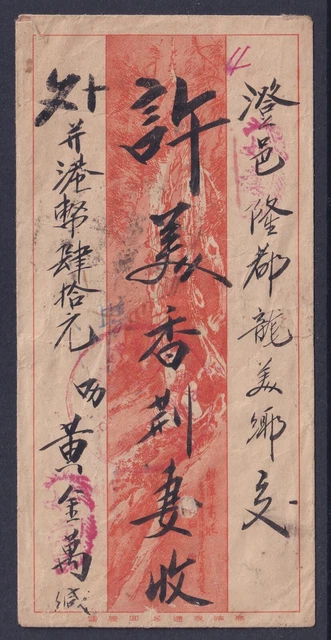 澄邑隆都龍美鄉交
許美香荊妻收
外并港幣肆拾元 叻黃金萬緘